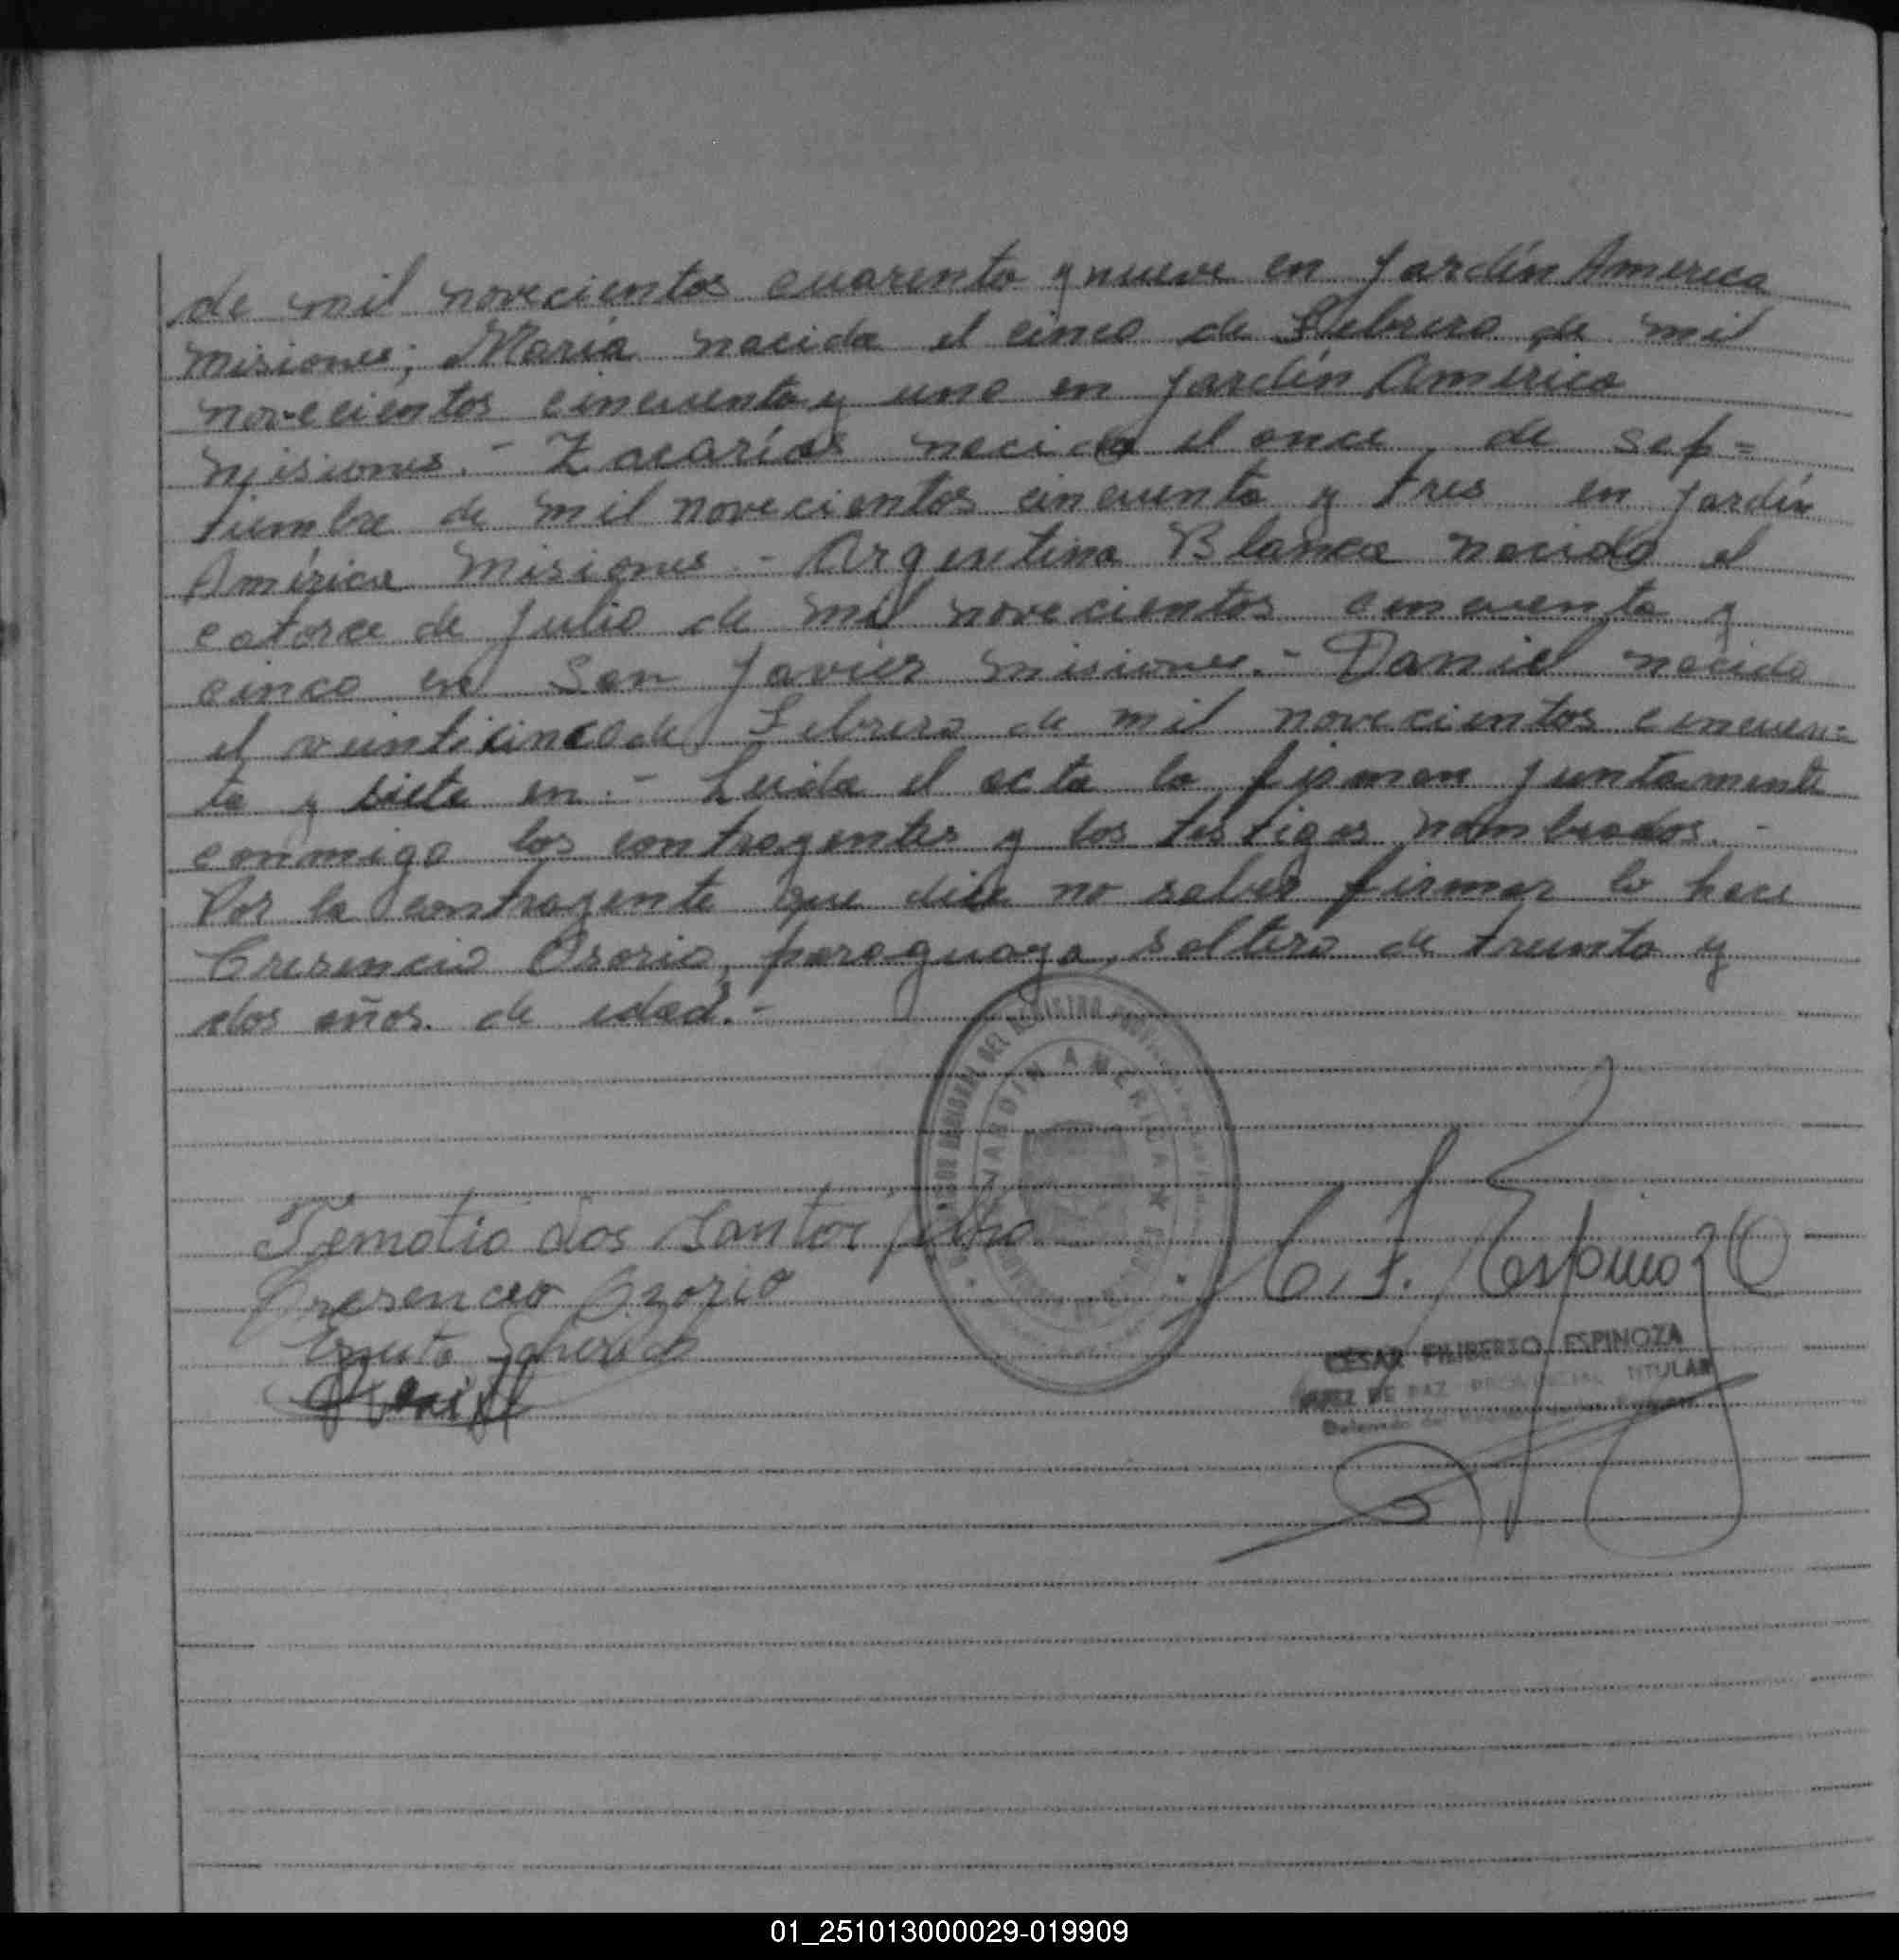 de mil novecientos cuarenta y nueve en Jardín America
Misiones; María nacida el cinco de Febrero de mil
novecientos cincuenta y uno en Jardín América
Misiones.- Zacarías nacido el once de sep=
tiembre de mil novecientos cincuenta y tres en Jardín
América Misiones.- Argentina Blanca nacida el
catorce de Julio de mil novecientos cincuenta y
cinco en San Javier Misiones.- Daniel nacido
el veinticinco de Febrero de mil novecientos cincuen=
ta y siete en.- Leida el acta la firman juntamente
conmigo los contrayentes y los testigos nombrados.-
Por la contrayente que dice no saber firmar lo hace
Cresencio Osorio, paraguayo, soltero de treinta y
dos años de edad.-
JARDIN AMERICA
Temotio dos Santos filho
C. F. Espinoza
Cresencio Ozorio
Ernesto
CESAR FILIBERTO ESPINOZA
JUEZ DE PAZ PROVINCIAL TITULAR
01_251013000029-019909